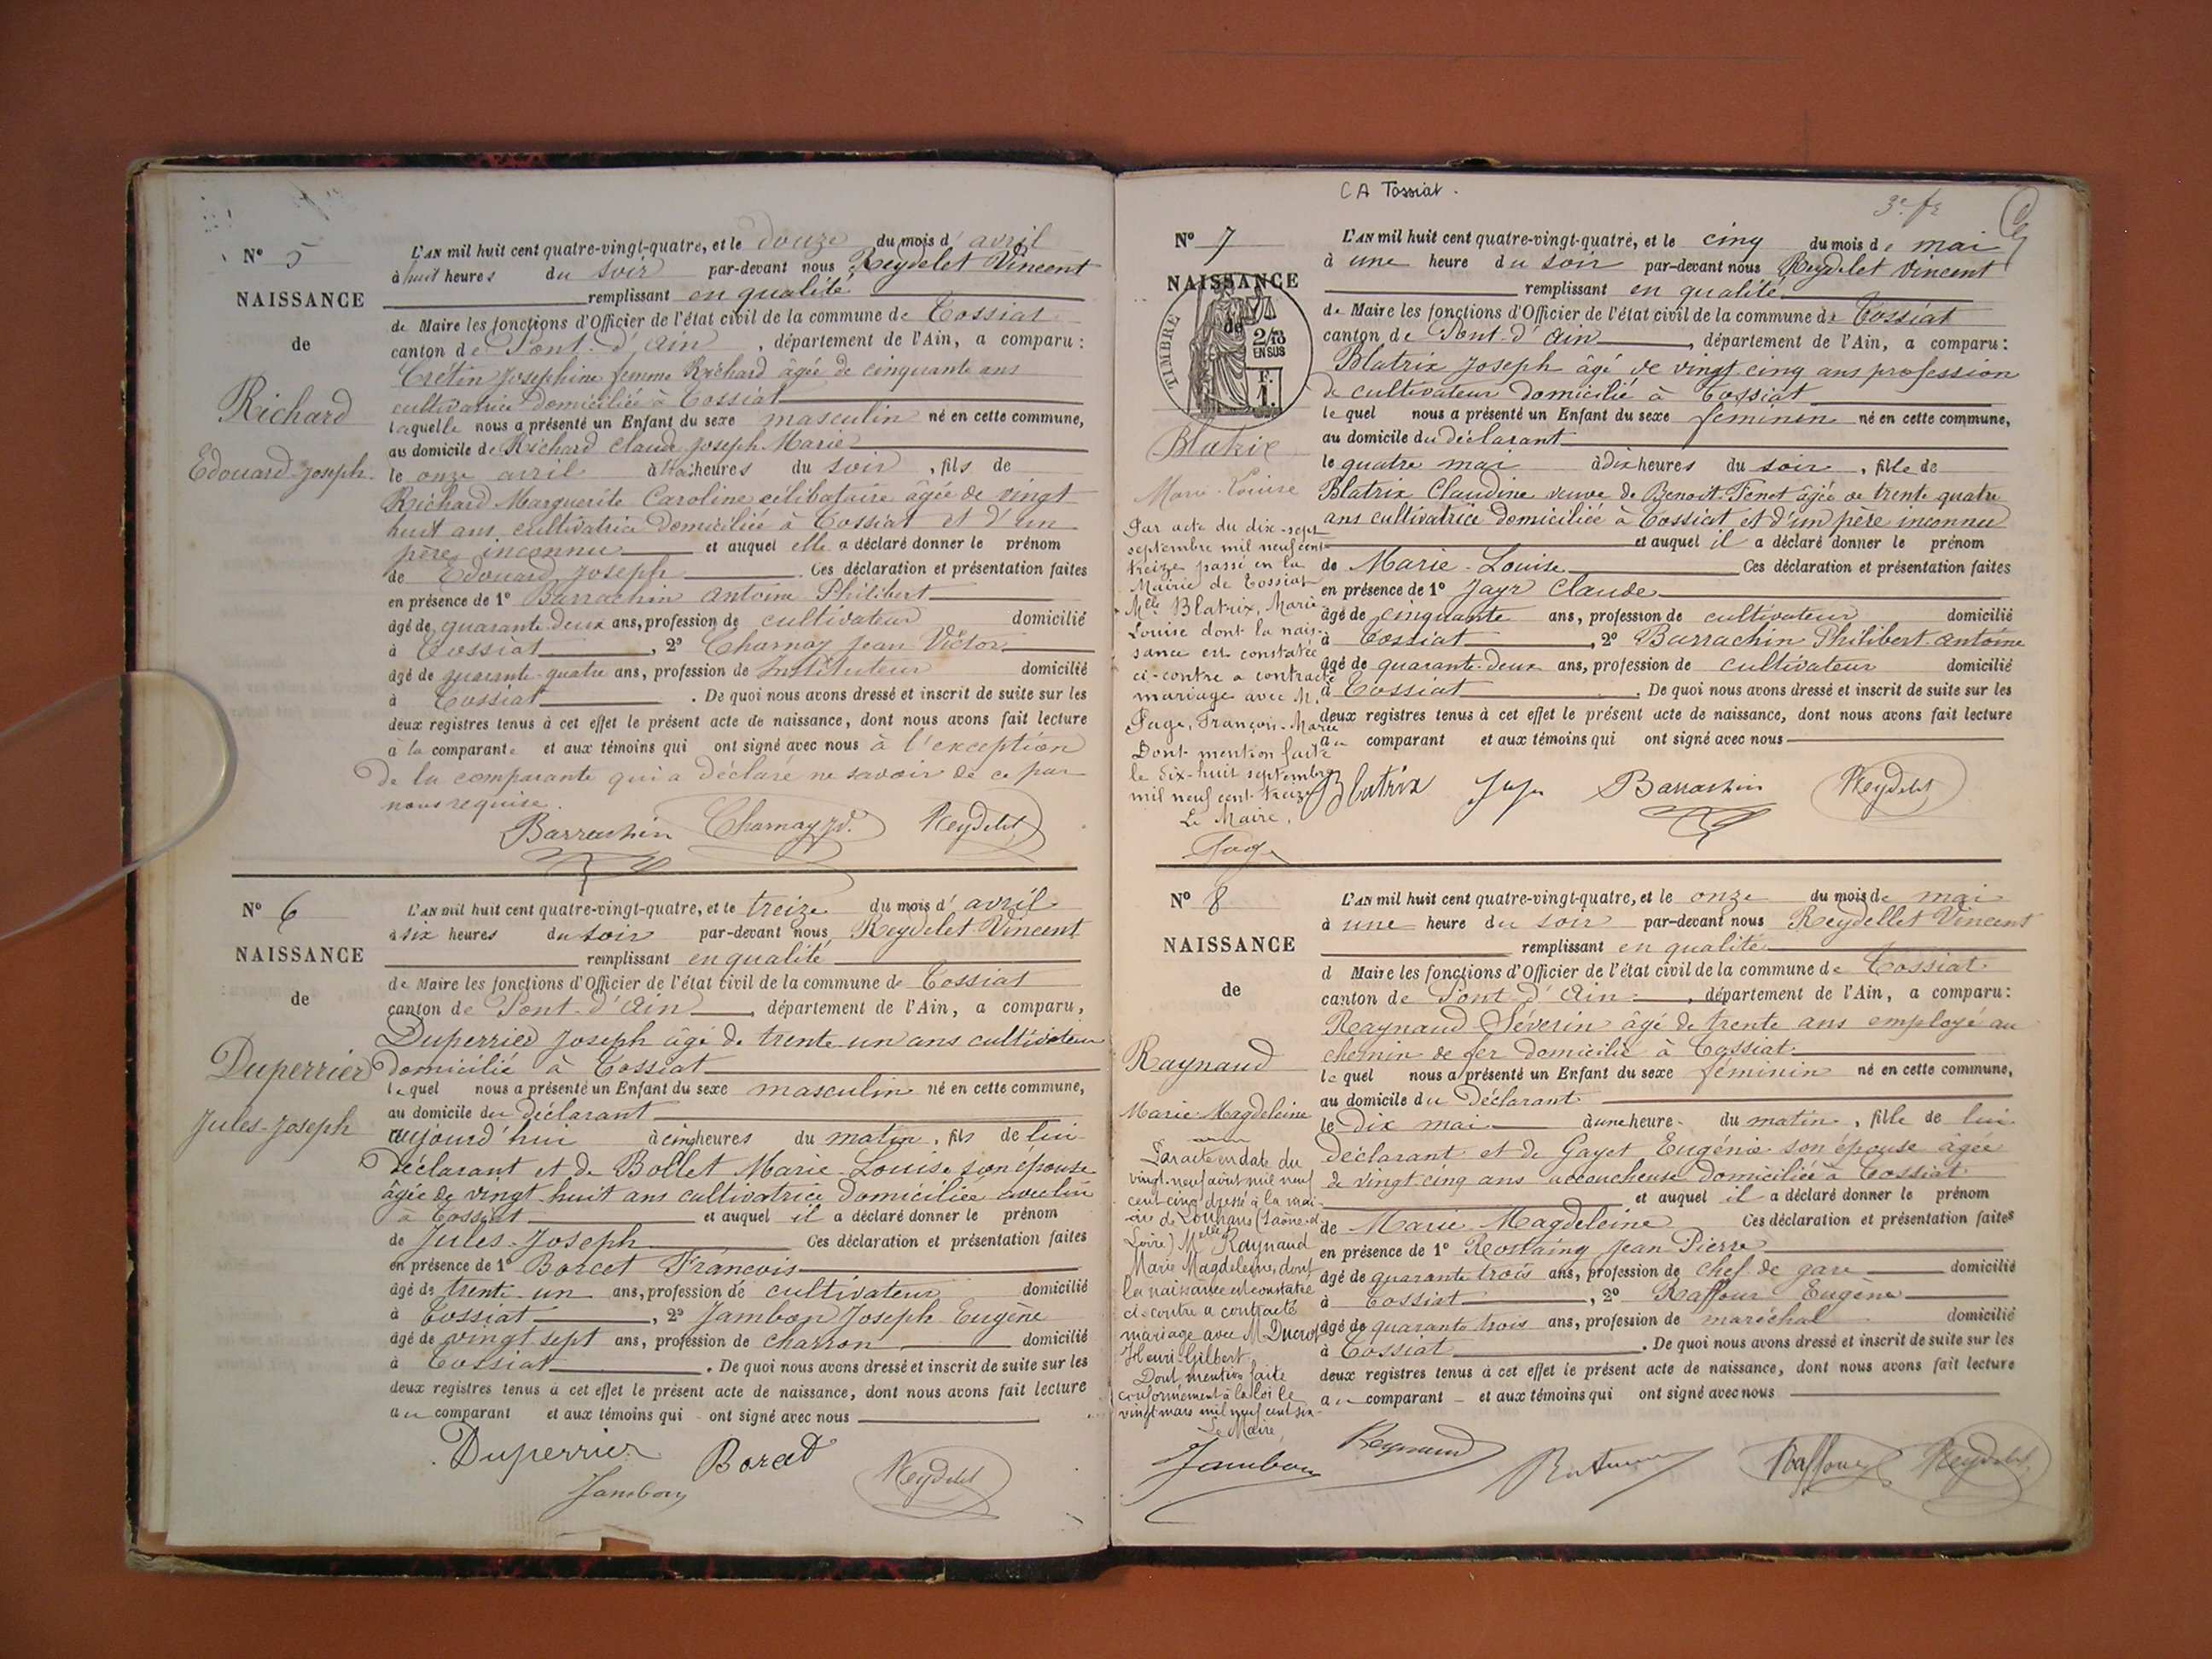 N° 5
NAISSANCE
de
Richard
Edouard Joseph.
L'AN mil huit cent quatre-vingt-quatre, et le douze du mois d' avril
à huit heures du soir par-devant nous Reydelet Vincent
remplissant en qualité
de Maire les fonctions d'Officier de l'état civil de la commune de Tossiat
canton de Pont-d'Ain, département de l'Ain, a comparu :
Cretin Josephine femme Richard âgée de cinquante ans
cultivatrice domiciliée à Tossiat
laquelle nous a présenté un Enfant du sexe masculin né en cette commune,
au domicile de Richard Claude Joseph Marie
le onze avril à heures du soir, fils de
Richard Marguerite Caroline célibataire âgée de vingt
huit ans cultivatrice domiciliée à Tossiat et d'un
père inconnu et auquel elle a déclaré donner le prénom
de Edouard Joseph. Ces déclaration et présentation faites
en présence de 1° Barrachin Antoine Philibert
âgé de quarante-deux ans, profession de cultivateur domicilié
à Tossiat, 2° Charnay Jean Victor
âgé de quarante-quatre ans, profession de Instituteur domicilié
à Tossiat. De quoi nous avons dressé et inscrit de suite sur les
deux registres tenus à cet effet le présent acte de naissance, dont nous avons fait lecture
à la comparante et aux témoins qui ont signé avec nous à l'exception
de la comparante qui a déclaré ne savoir de ce par
nous requise.
Barrachin Charnay Jv. Reydelet
N° 6
NAISSANCE
de
Duperrier
Jules-Joseph
L'AN mil huit cent quatre-vingt-quatre, et le treize du mois d' avril
à six heures du soir par-devant nous Reydelet Vincent
remplissant en qualité
de Maire les fonctions d'Officier de l'état civil de la commune de Tossiat
canton de Pont-d'Ain, département de l'Ain, a comparu,
Duperrier Joseph âgé de trente-un ans cultivateur
domicilié à Tossiat
lequel nous a présenté un Enfant du sexe masculin né en cette commune,
au domicile du déclarant
aujourd'hui à cinq heures du matin, fils de lui
déclarant et de Bollet Marie-Louise son épouse
âgée de vingt-huit ans cultivatrice domiciliée avec lui
à Tossiat et auquel il a déclaré donner le prénom
de Jules-Joseph Ces déclaration et présentation faites
en présence de 1° Borcet François
âgé de trente-un ans, profession de cultivateur domicilié
à Tossiat, 2° Jambon Joseph Eugène
âgé de vingt-sept ans, profession de charron domicilié
à Tossiat. De quoi nous avons dressé et inscrit de suite sur les
deux registres tenus à cet effet le présent acte de naissance, dont nous avons fait lecture
au comparant et aux témoins qui ont signé avec nous
Duperrier Borcet
Jambon Reydelet
CA Tossiat.
3e. fe
N° 7
NAISSANCE
de
TIMBRE
2/10
EN SUS
F.
1.
Blatrix
Marie-Louise
Par acte du dix-sept
septembre mil neuf cent
treize passé en la
Mairie de Tossiat
Mlle Blatrix, Marie
Louise dont la nais-
sance est constatée
ci-contre a contracté
mariage avec M.
Page, François-Marie
Dont mention faite
le dix-huit septembre
mil neuf cent treize
Le Maire,
Page
L'AN mil huit cent quatre-vingt-quatre, et le cinq du mois de mai
à une heure du soir par-devant nous Reydelet Vincent
remplissant en qualité
de Maire les fonctions d'Officier de l'état civil de la commune de Tossiat
canton de Pont-d'Ain, département de l'Ain, a comparu :
Blatrix Joseph âgé de vingt cinq ans profession
de cultivateur domicilié à Tossiat
lequel nous a présenté un Enfant du sexe feminin né en cette commune,
au domicile du déclarant
le quatre mai à dix heures du soir, fille de
Blatrix Claudine veuve de Benoit Fenet âgée de trente quatre
ans cultivatrice domiciliée à Tossiat et d'un père inconnu
et auquel il a déclaré donner le prénom
de Marie-Louise Ces déclaration et présentation faites
en présence de 1° Jayr Claude
âgé de cinquante ans, profession de cultivateur domicilié
à Tossiat, 2° Barrachin Philibert-Antoine
âgé de quarante-deux ans, profession de cultivateur domicilié
à Tossiat. De quoi nous avons dressé et inscrit de suite sur les
deux registres tenus à cet effet le présent acte de naissance, dont nous avons fait lecture
au comparant et aux témoins qui ont signé avec nous
Blatrix Jayr Barrachin Reydelet
N° 8
NAISSANCE
de
Raynaud
Marie-Magdeleine
Par acte en date du
vingt-neuf août mil neuf
cent cinq dressé à la mai-
rie de Louhans (Saône-et-
Loire) Melle Raynaud
Marie Magdeleine, dont
la naissance est constatée
ci-contre a contracté
mariage avec M Ducrot
Henri-Gilbert.
Dont mention faite
conformément à la loi le
vingt mars mil neuf cent six.
Le Maire,
Jambon
L'AN mil huit cent quatre-vingt-quatre, et le onze du mois de mai
à une heure du soir par-devant nous Reydellet Vincent
remplissant en qualité
d Maire les fonctions d'Officier de l'état civil de la commune de Tossiat
canton de Pont-d'Ain, département de l'Ain, a comparu :
Raynaud Séverin âgé de trente ans employé au
chemin de fer domicilié à Tossiat
lequel nous a présenté un Enfant du sexe féminin né en cette commune,
au domicile du déclarant
le dix mai à une heure du matin, fille de lui
déclarant et de Gayet Eugénie son épouse âgée
de vingt-cinq ans accoucheuse domiciliée à Tossiat
et auquel il a déclaré donner le prénom
de Marie-Magdeleine Ces déclaration et présentation faites
en présence de 1° Rostaing Jean Pierre
âgé de quarante trois ans, profession de chef de gare domicilié
à Tossiat, 2° Raffour Eugène
âgé de quarante trois ans, profession de maréchal domicilié
à Tossiat. De quoi nous avons dressé et inscrit de suite sur les
deux registres tenus à cet effet le présent acte de naissance, dont nous avons fait lecture
au comparant et aux témoins qui ont signé avec nous
Raynaud Raffour Reydelet